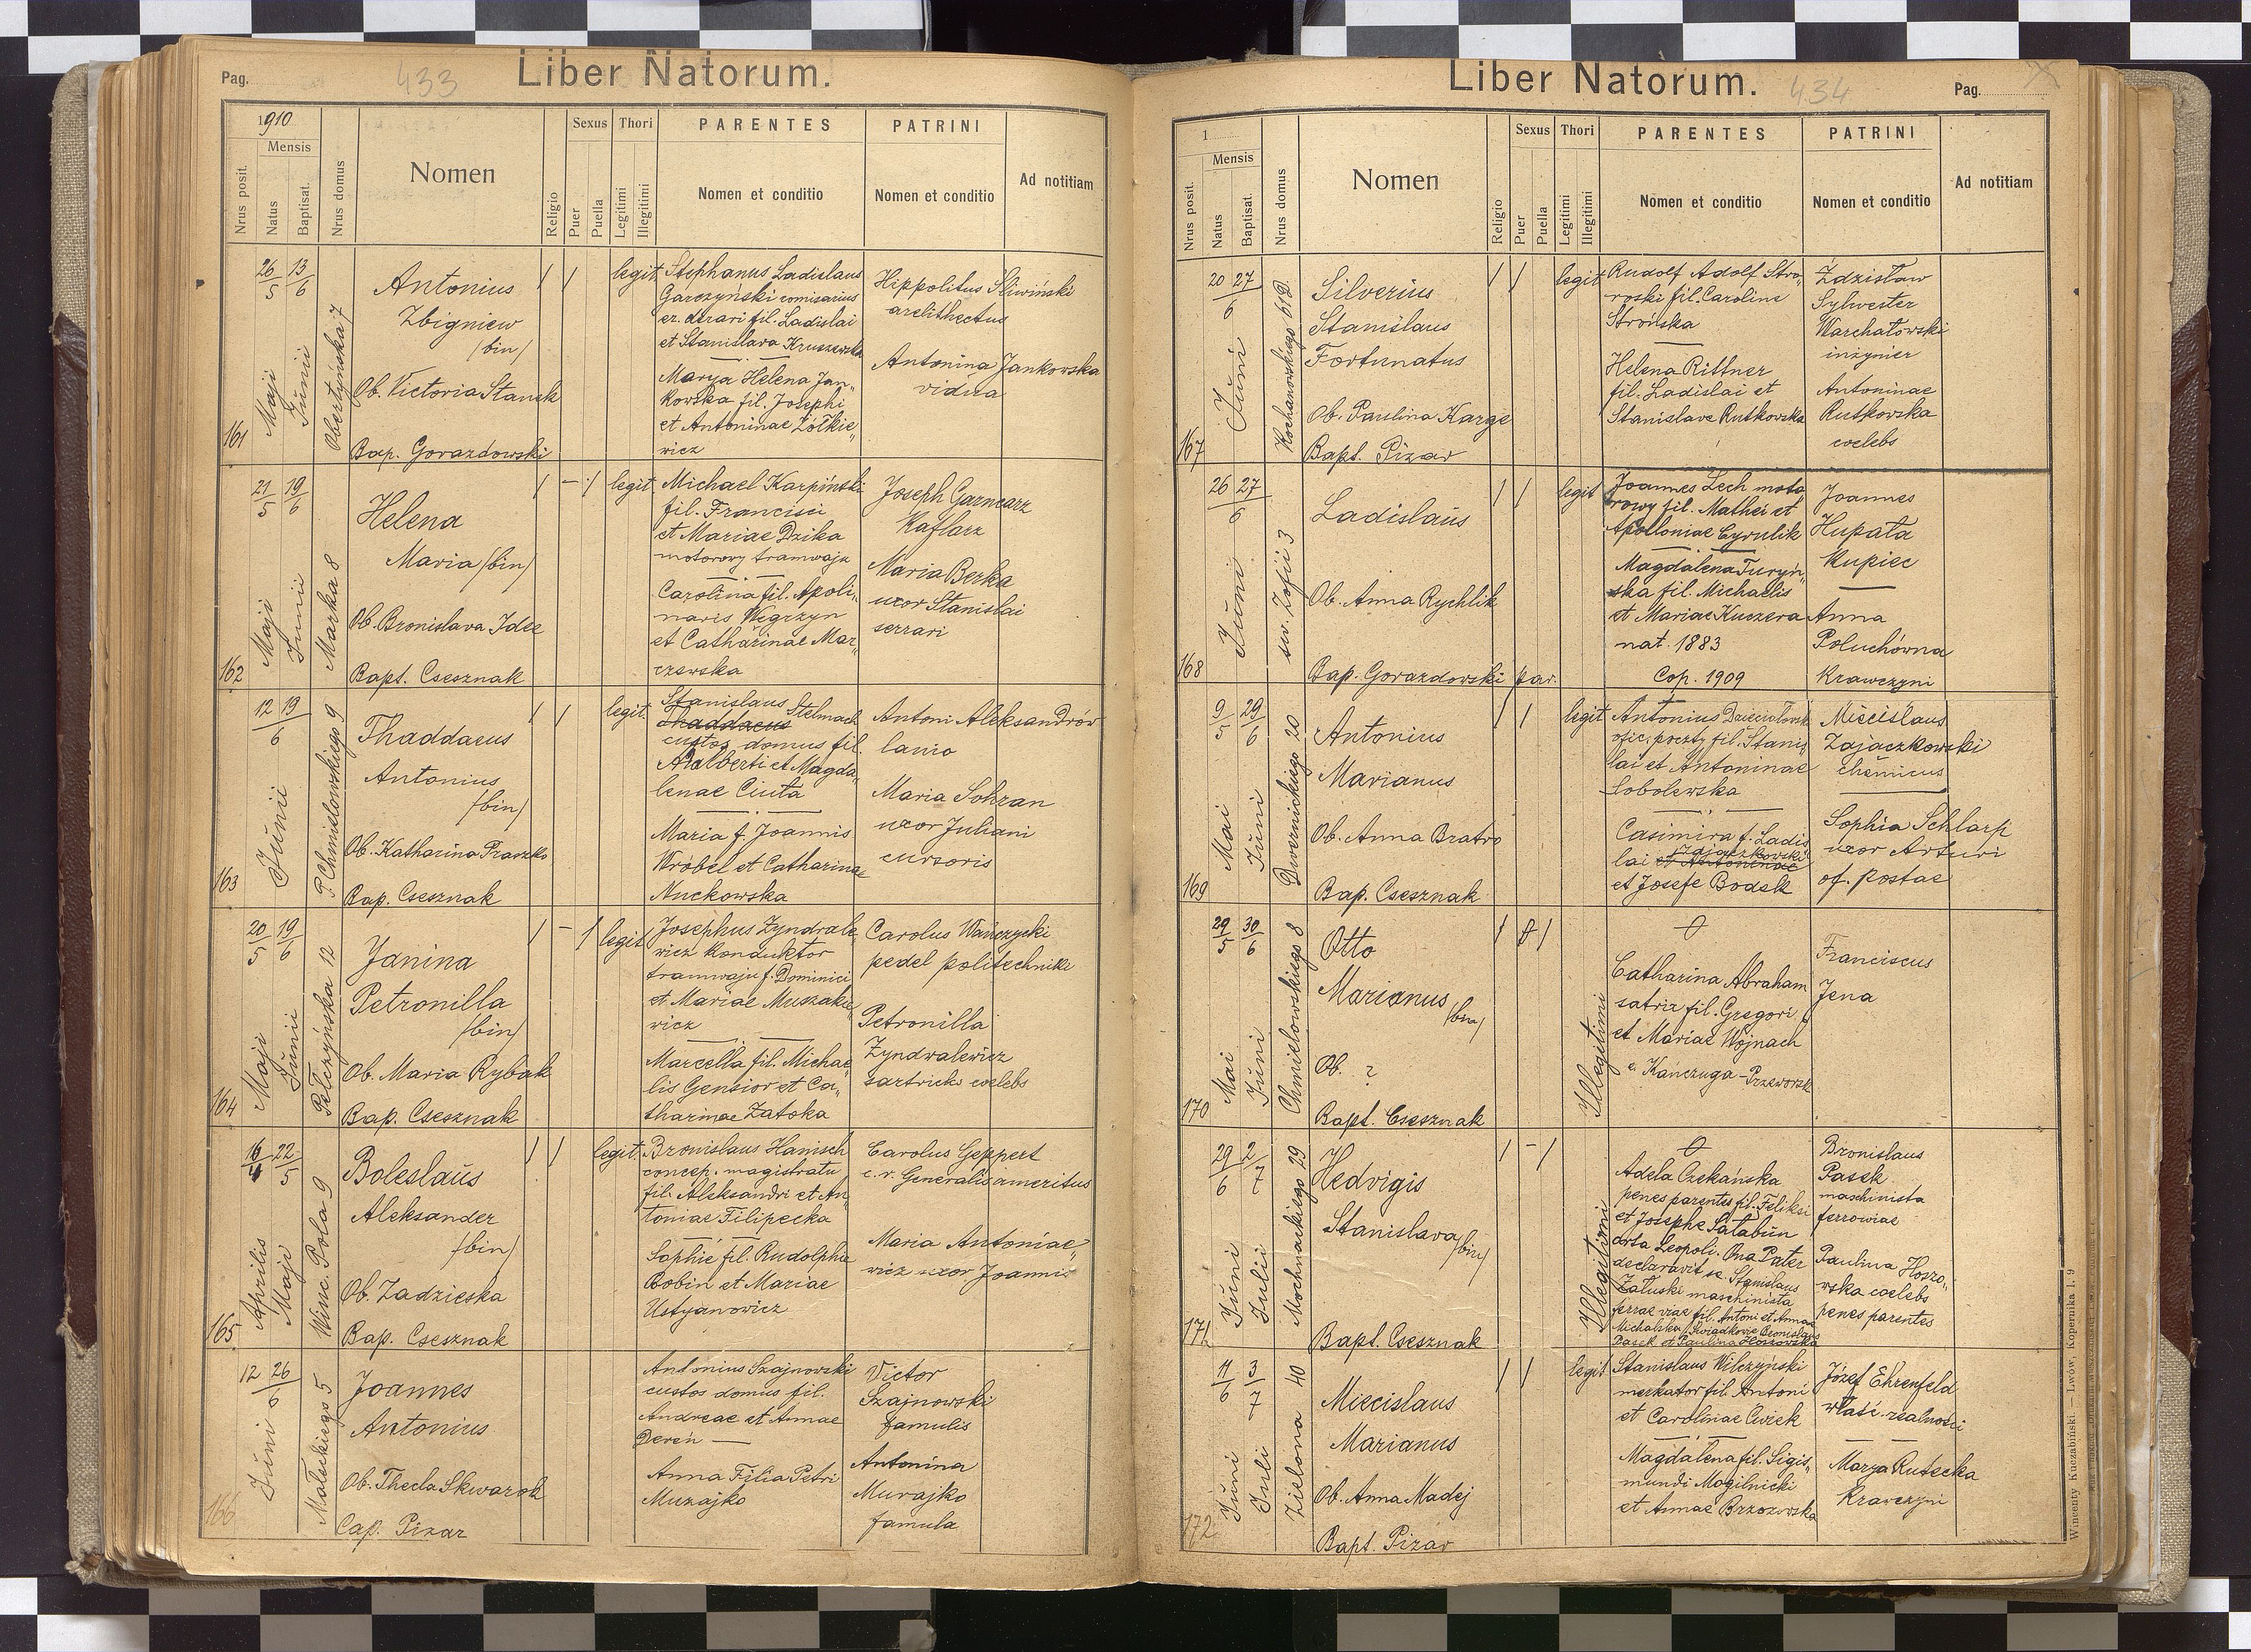 Pag.
433
Liber Natorum.
1910
Mensis
Nrus posit.
Natus
Baptisat.
Nrus domus
Nomen
Religio
Sexus
Puer
Puella
Thori
Legitimi
Illegitimi
PARENTES
Nomen et conditio
PATRINI
Nomen et conditio
Ad notitiam
161
26/5 13/6
Maji
Junii
Obertyńska 7
Antonius
Zbigniew
/bin/
Ob. Victoria Stanek
Bap. Gorazdowski
legit.
Stephanus Ladislaus
Garczyński comisarius
er. derari fil. Ladislai
et Stanislava Kruszewska
Marya Helena Jan„
kowska fil. Josephi
et Antoninae Żółkie„
wicz
Hippolitus Śliwiński
arclithectus
Antonina Jankowska
vidua
162
21/5 19/6
Maji
Junii
Marka 8
Helena
Maria /bin/
Ob. Bronislava Idec
Bapt. Csesznak
legit
Michael Karpiński
fil. Francisci
et Mariae Dzika
motorowy tramwaju
Carolina fil. Apoli„
naris Węgrzyn
et Catharinae Mar„
czewska
Joseph Garncarz
Kaflarz
Maria Berka
uxor Stanislai
serrari
163
12 19/6
Junii
P. Chmielowskiego 9
Thaddaeus
Antonius
/bin/
Ob. Katharina Praszko
Bap. Csesznak
legit.
Stanislaus Stelmach
Thaddaeus
custos domus fil.
Adalberti et Magda„
lenae Ciuta
Maria f. Joannis
Wróbel et Catharinae
Nuckowska
Antoni Aleksandrów
lanio
Maria Sohran
uxor Juliani
cursoris
164
20/5 19/6
Maji
Junii
Pełczyńska 12
Janina
Petronilla
/bin/
Ob. Maria Rybak
Bap. Csesznak
legit
Josephus Zyndrale
wicz konduktor
tramwaju f. Dominici
et Mariae Muszakie„
wicz
Marcella fil. Michae
lis Gensior et Ca„
tharinae Zatoka
Carolus Wańczycki
pedel politechniki
Petronilla
Zyndwalewicz
sartricks coelebs
165
16/4 22/5
Aprilis
Maji
Winc. Pola 9
Boleslaus
Aleksander
/bin/
Ob. Zadzieska
Bap. Csesznak
legit.
Bronislaus Hanisch
concep. magistratu
fil. Aleksandri et An„
toniae Filipecka
Sophie fil. Rudolphie
Bobin et Mariae
Ustyanowicz
Carolus Geppert
c. r. Generalis ameritus
Maria Antoniae„
wicz uxor Joannis
166
12 26/6
Juni
Małeckiego 5
Joannes
Antonius
Ob. Thecla Skwarok
Cap. Pizar
Antonius Szajnowski
custos domus fil.
Andreae et Annae
Dereń —
Anna Filia Petri
Muzajko
Victor
Szajnowski
famulis
Antonina
Murajko
famula
Liber Natorum.
434
Pag.
1
Mensis
Nrus posit.
Natus
Baptisat.
Nrus domus
Nomen
Religio
Sexus
Puer
Puella
Thori
Legitimi
Illegitimi
PARENTES
Nomen et conditio
PATRINI
Nomen et conditio
Ad notitiam
167
20 27/6
Juni
Kochanowskiego 61D
Silverius
Stanislaus
Fortunatus
Ob. Paulina Karge
Bapt. Pizar
legit
Rudolf Adolf Stro„
ński fil. Caroline
Strońska
Helena Rittner
fil. Ladislai et
Stanislave Rutkowska
Zdzisław
Sylwester
Warchałowski
inżynier
Antoninae
Rutkowska
coelebs
168
26 27/6
Juni
św. Zofii 3
Ladislaus
Ob. Anna Rychlik
Bap. Gorazdowski par.
legit
Joannes Lech moto
rowy fil. Mathei et
Apolloniae Cyrulik
Magdalena Turyń„
ska fil. Michaelis
et Mariae Kuczera
nat. 1883
Cop. 1909
Joannes
Hupała
Kupiec
Anna
Poluchówna
Krawczyni
169
9/5 29/6
Mai
Juni
Dwernickiego 20
Antonius
Marianus
Ob. Anna Bratro
Bap. Csesznak
legit
Antonius
ofic. poczty fil. Stanis
lai et Antoninae
Sobolewska
Casimira f. Ladis
Zdiaczkowski
lai et Antoninae
et Josefe Bodek
Miecislaus
Zajaczkowski
chemicus
Sophia Schlarp
uxor Arturi
of. postae
170
29/5 30/6
Mai
Juni
Chmielowskiego 8
Otto
Marianus
/bin/
Ob. ?
Bapt. Csesznak
Illegitimi
Catharina Abraham
satrix fil. Gregori
et Mariae Wojnach
c. Kańczuga-Przeworsk
Franciscus
Jena
171
29/6 2/7
Juni
Julii
Mochnackiego 29
Hedvigis
Stanislava /bin/
Bapt. Csesznak
Illegitimi
Adela Czekańska
penes parentes fil. Feliksi
et Josephe Sałabun
orta Leopoli. Ona Pater
declaravit se Stanislaus
Załuski maschinista
ferrae viae fil. Antoni et Annae
Michalska / Świadkowie Bronislaus
Pasek et Paulina Hoszowska
Bronislaus
Pasek
maschinista
ferrowiae
Paulina Hoszo„
wska coelebs
penes parentes
172
11/6 3/7
Juni
Juli
Zielona 40
Miecislaus
Marianus
Ob. Anna Madej
Bapt. Pizar
legit
Stanislaus Wilczyński
merkator fil. Antoni
et Carolinae Ćwiek
Magdalena fil. Sigis„
mundi Mogilnicki
et Annae Brzozowska
Józef Ehrenfeld
właść. realności
Marya Rutecka
Krawczyni
Winenty Kuczabiński. — Lwów, Kopernika l. 9